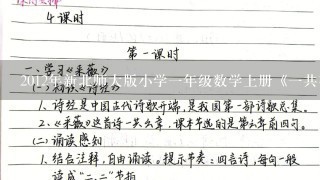 4课时
第一课时
一、学习《采薇》
2012年新北师大版小学一年级数学上册《一共
(一)初读《诗经》
1、诗经是中国古代诗歌开端,是我国第一部诗歌总集。
2、《采薇》这首诗一共六章,课本节选的是第六章前四句。
(二)诵读感知
1、结合注释,自由诵读。提示节奏:四言诗,每句一般
读成"二、二"节拍